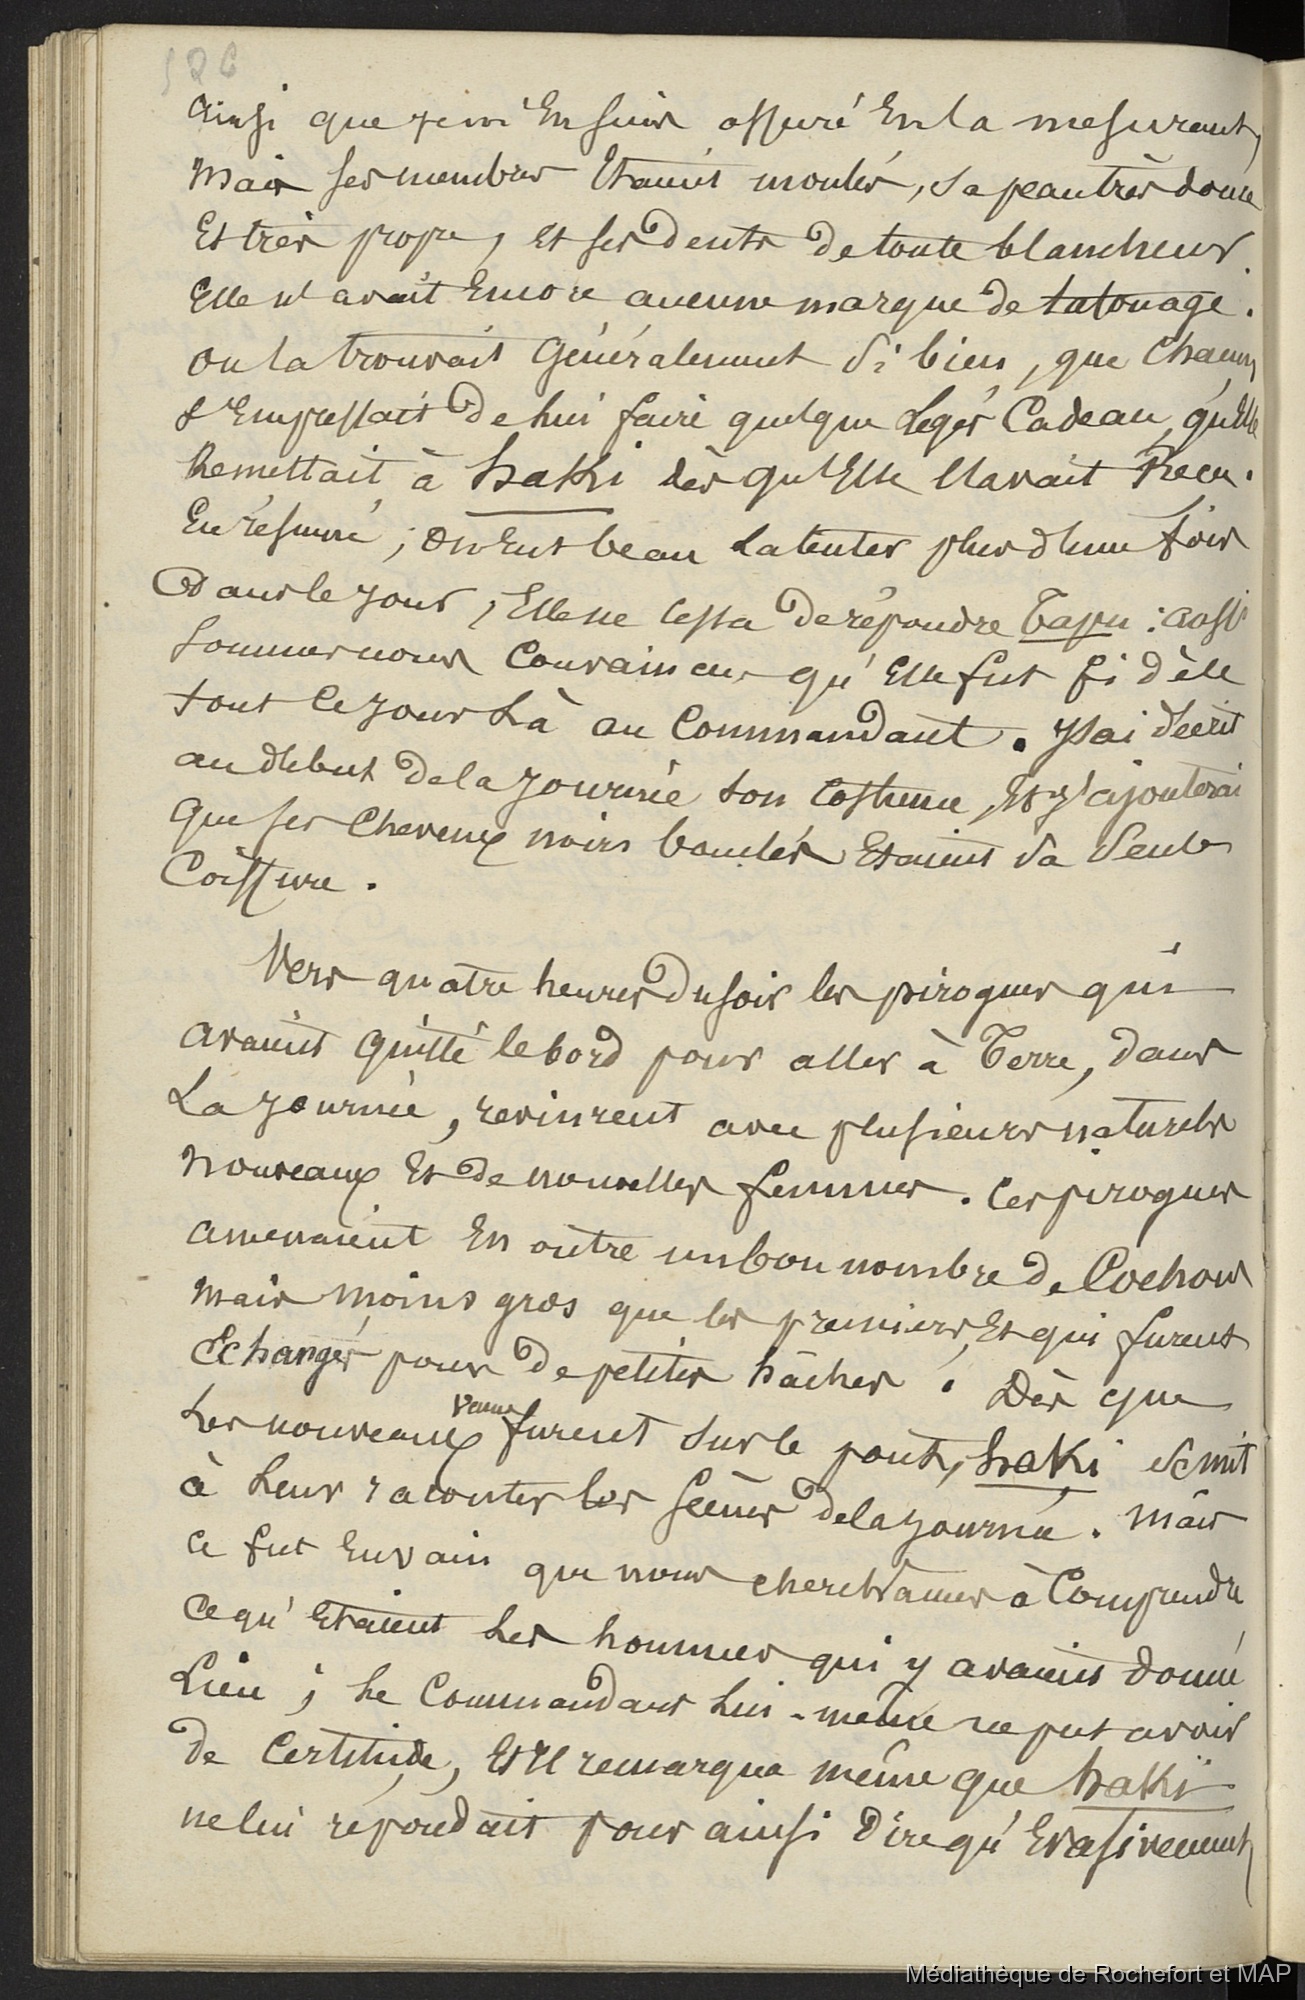 526
ainsi que je m'en suis assuré en la mesurant,
mais ses membres étaient moulés, sa peau très douce
et très propre, et ses dents de toute blancheur.
Elle n'avait encore aucune marque de tatouage.
on la trouvait généralement si bien, que chacun
s'empressait de lui faire quelque léger cadeau, qu'elle
remettait à hakhi dès qu'elle l'avait reçu.
En résumé, on eut beau la tenter plus d'une fois
dans le jour, Elle ne cessa de répondre Tapu : aussi
sommes nous convaincus qu'elle fut fidèle
tout ce jour là au Commandant. J'ai décrit
au début de la journée son costume, et j'ajouterai
que ses cheveux noirs bouclés étaient sa seule
Coiffure.
Vers quatre heures du soir les pirogues qui
avaient quitté le bord pour aller à Terre, dans
la journée, revinrent avec plusieurs naturels
nouveaux et de nouvelles femmes. Ces pirogues
amenaient en outre un bon nombre de Cochons
mais moins gros que les premiers, et qui furent
Echangés pour de petites hâches. Dès que
les nouveaux venus furent sur le pont, hakhi se mit
à leur raconter les scènes de la journée. Mais
ce fut envain que nous cherchâmes à Comprendre
ce qu'étaient les hommes qui y avaient donné
lieu ; le Commandant lui-même ne put avoir
de certitude, et il remarqua même que hakhi
ne lui répondait pour ainsi dire qu'évasivement,
Médiathèque de Rochefort et MAP